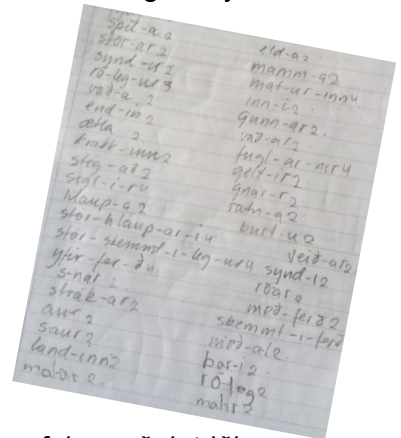 spil-a 2
stór-ar 2
synd-ur 2
ró-leg-ur 4
vað-a 2
end-in 2
ætla 2
kratt-inn 2
steg-ar 2
sigl-i-r 4
hlaup-a 2
stór-hlaup-ar-i 4
stór-skemmt-i-leg-ur 4
yfir-fer-ð 4
s-nar
strák-ar 2
aur 2
saur 2
land-inn 2
mal-ar 2
eld-a 2
mamm-a 2
mat-ur-inn 4
inn-i 2
gunn-ar 2
-ar 2
fugl-ar-nir 4
gelt-ir 2
gnar-r 2
safn-a 2
burt-u 2
veið-ar 2
synd-i 2
róar 2
með-ferð 2
skemmt-i-ferð
með-al 2
bar-i 2
ró-leg 2
malir 2